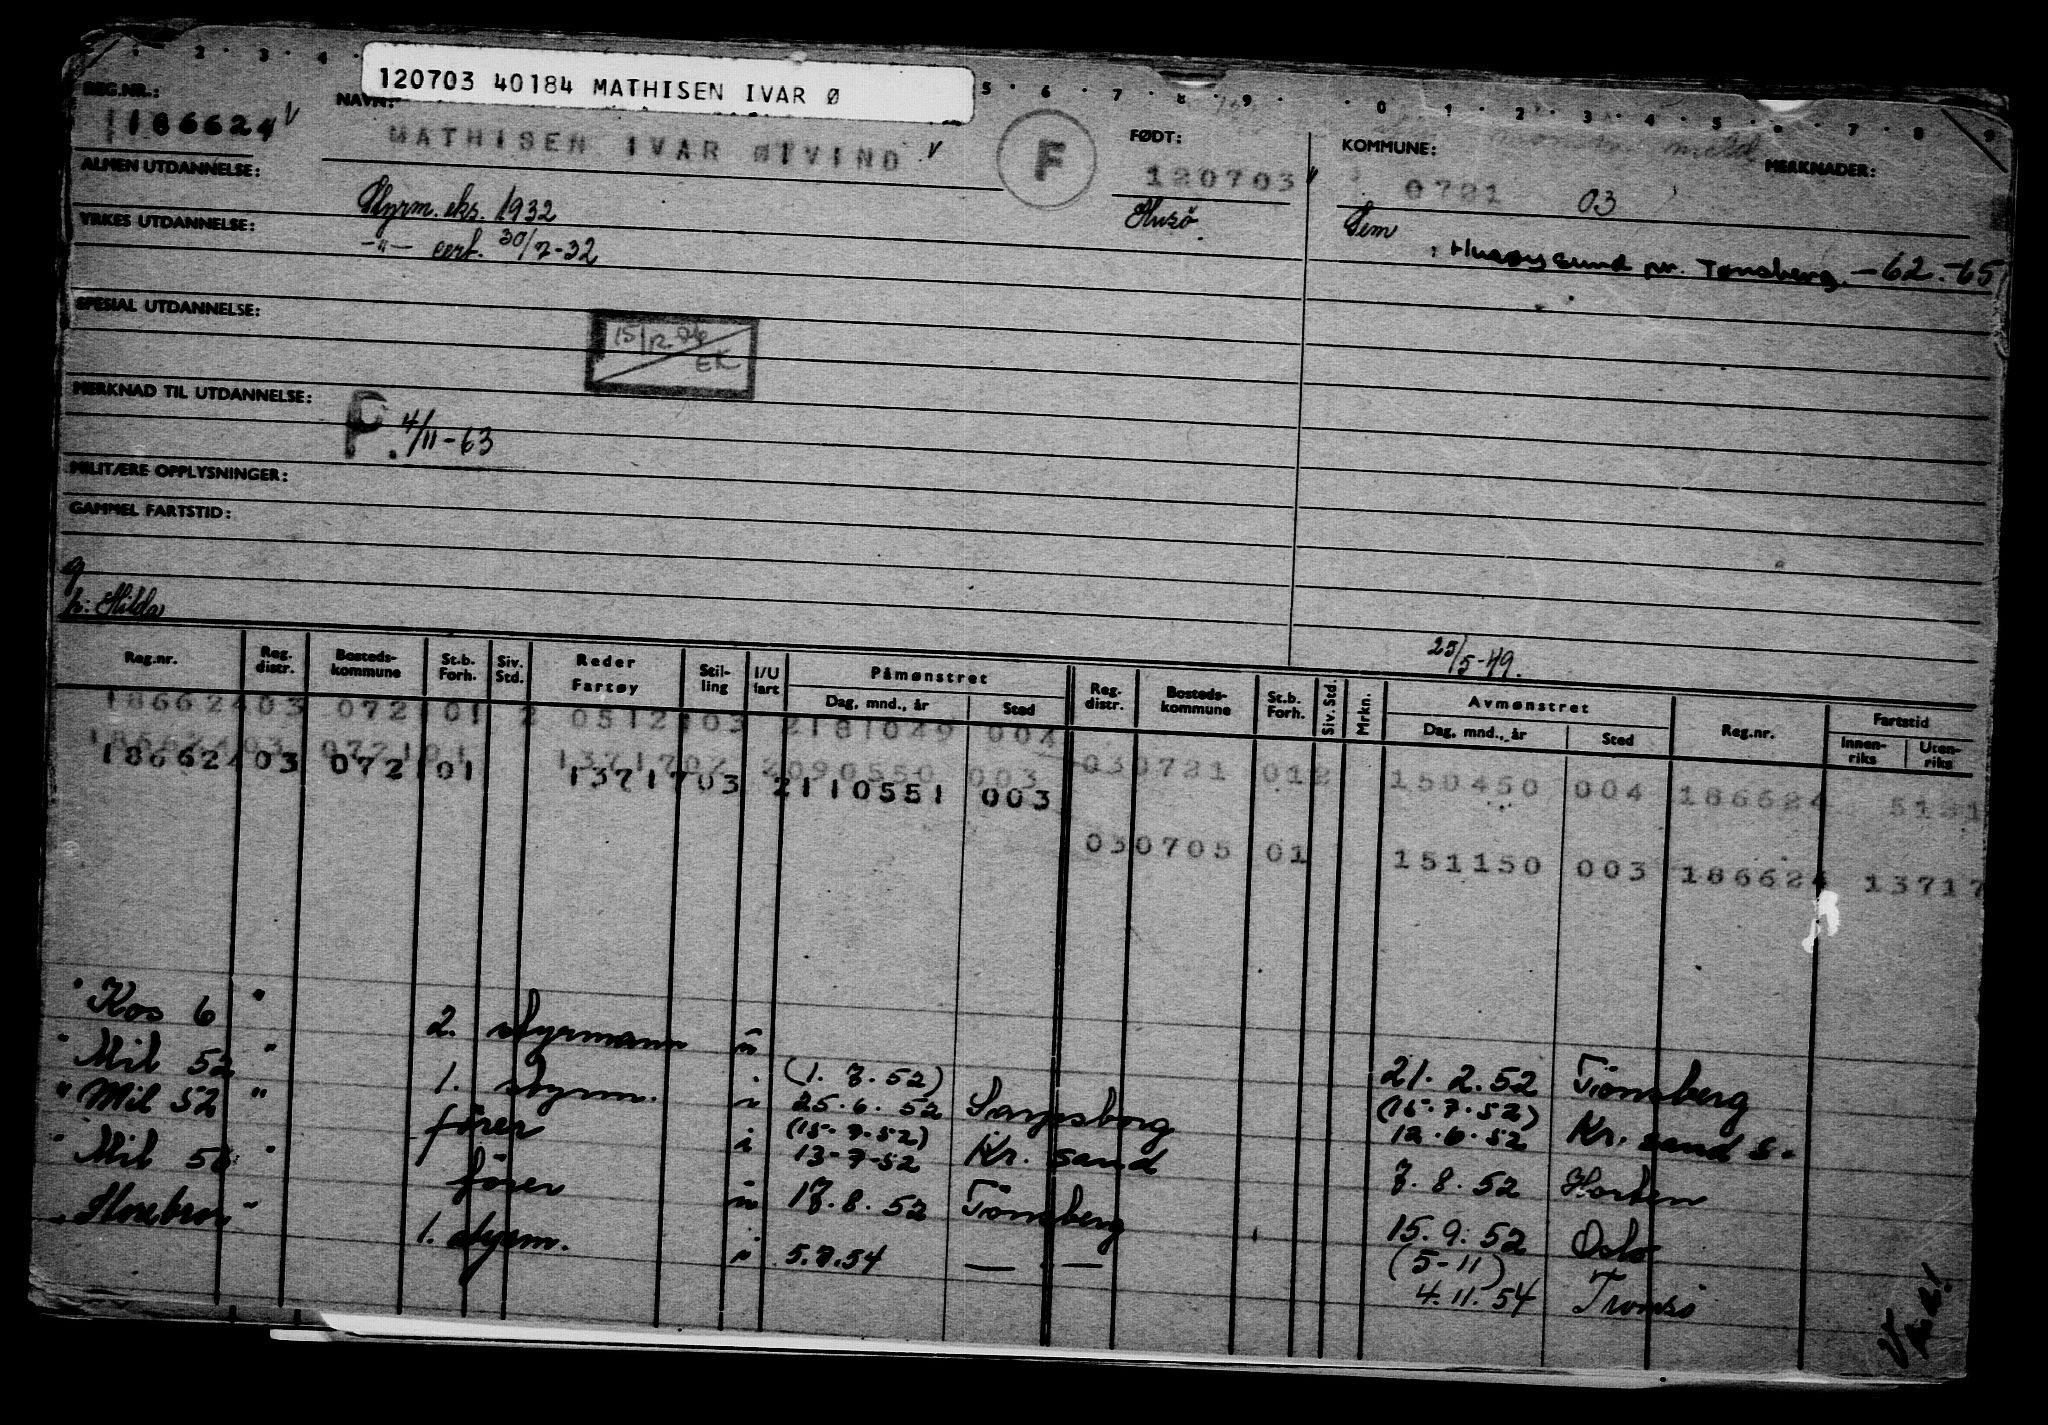 120703 40184 MATHISEN IVAR Ø
REG.NR.:
186624
NAVN:
MATHISEN IVAR ØIVIND
F
FØDT:
120703
Husö
KOMMUNE:
0721 03
MERKNADER:
Sem
Husøysund pr. Tønsberg. -62.-65
ALMEN UTDANNELSE:
Styrm. eks. 1932
YRKES UTDANNELSE:
-"- cert. 30/7-32
SPESIAL UTDANNELSE:
EK
MERKNAD TIL UTDANNELSE:
P. 4/11-63
MILITÆRE OPPLYSNINGER:
GAMMEL FARTSTID:
g
h: Hilda
25/5-49.
Reg.nr. Reg. distr. Bosteds- kommune St.b. Forh. Siv. Std. Reder Fartøy Stil- ling I/U fart Påmønstret Dag, mnd., år Sted Reg. distr. Bosteds- kommune St.b. Forh. Siv. Std. Mrkn. Avmønstret Dag, mnd., år Sted Reg.nr. Fartstid Innen- riks Uten- riks
186624 03 0721 01 2 0512103 2181049 004
186624 03 0721 01 1371702 2090550 003 030721 012 150450 004 186624
186624 03 0721 01 1371703 2110551 003
030705 01 151150 003 186624 13717
"Kos 6" 2. styrmann u 21. 2. 52 Tönsberg
"Mil 52" 1. styrm. (1. 7. 52) 25. 6. 52 Sarpsborg (15.7.52) 12.6.52 Kr. sand S.
"Mil 52" fører i (15.7.52) 13-7-52 Kr. sand 7. 8. 52 Horten
fører 17. 8. 52 Tönsberg 15. 9. 52 Oslo
1. styrm. i 5.7.54 — " — (5-11) 4. 11. 54 Tromsö